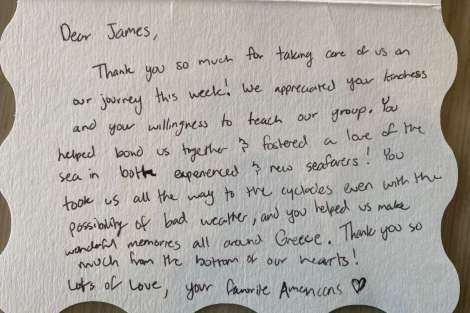 Dear James,
Thank you so much for taking care of us on
our journey this week! We appreciated your kindness
and your willingness to teach our group. You
helped bond us together & fostered a love of the
sea in both experienced & new seafarers! You
took us all the way to the cyclades even with the
possibility of bad weather, and you helped us make
wonderful memories all around Greece. Thank you so
much from the bottom of our hearts!
Lots of Love, your favorite Americans ♡